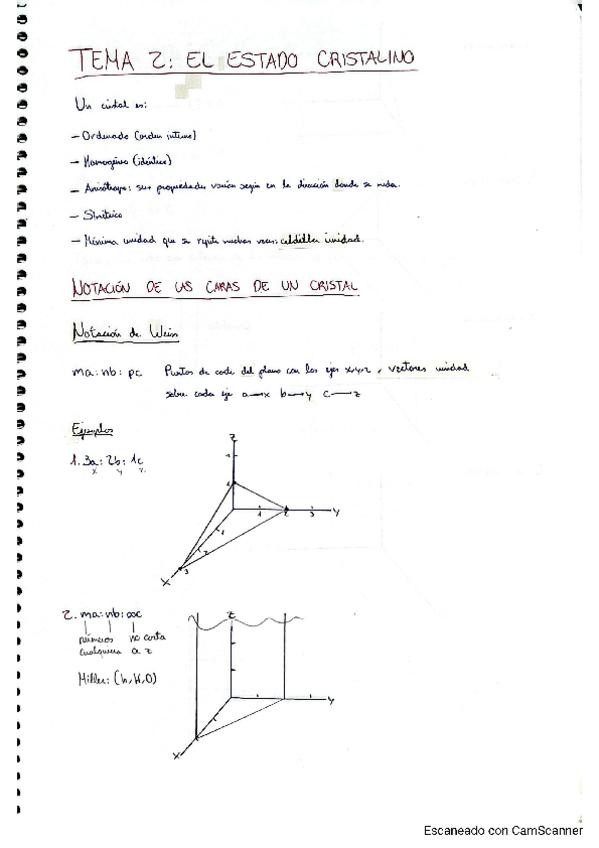 TEMA 2: EL ESTADO CRISTALINO
Un cristal es:
- Ordenado (orden interno)
- Homogéneo (idéntico)
- Anisótropo: sus propiedades varían según en la dirección donde se mida.
- Simétrico
- Mínima unidad que se repite muchas veces: celdilla unidad.
NOTACIÓN DE LAS CARAS DE UN CRISTAL
Notación de Weiss
ma: nb: pc Puntos de corte del plano con los ejes x,y,z, vectores unidad
sobre cada eje a→x b→y c→z
Ejemplos
1. 3a: 2b: 1c
x y z
Z
1
1 2 3 Y
1
2
3
X
2. ma: nb: ∞c
números no corta
cualquiera a z
Miller: (h,k,0)
Z
Y
X
Escaneado con CamScanner